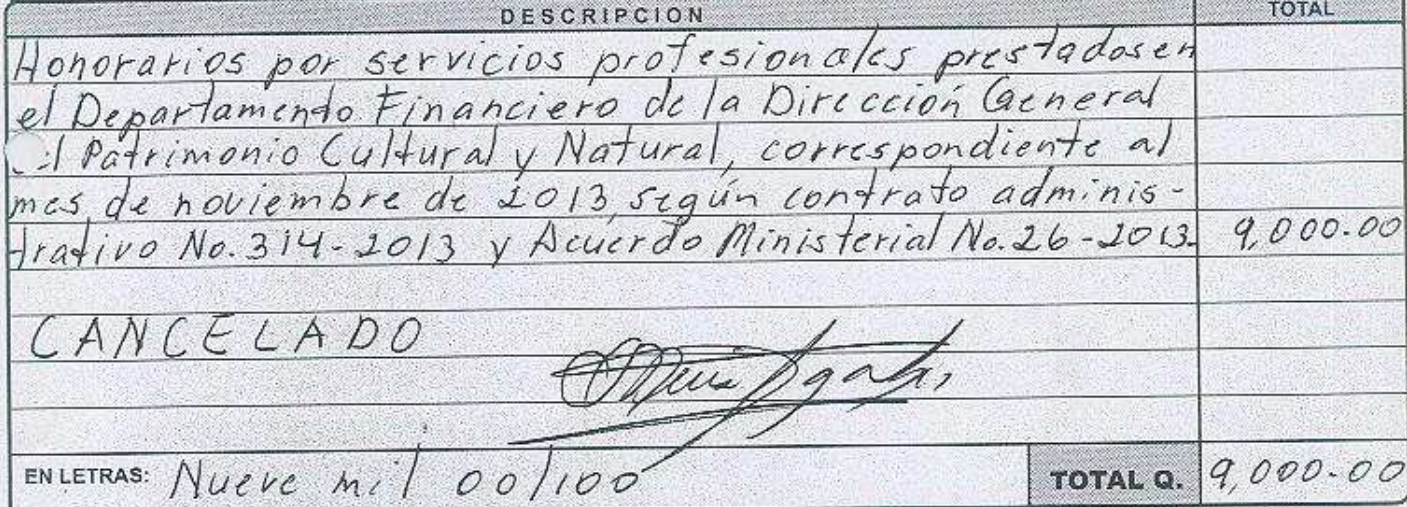 DESCRIPCION TOTAL
Honorarios por servicios profesionales prestados en
el Departamento Financiero de la Dirección General
el Patrimonio Cultural y Natural, correspondiente al
mes de noviembre de 2013 según contrato adminis-
trativo No. 314-2013 y Acuerdo Ministerial No. 26-2013. 9,000.00
CANCELADO
EN LETRAS: Nueve mil 00/100 TOTAL Q. 9,000.00